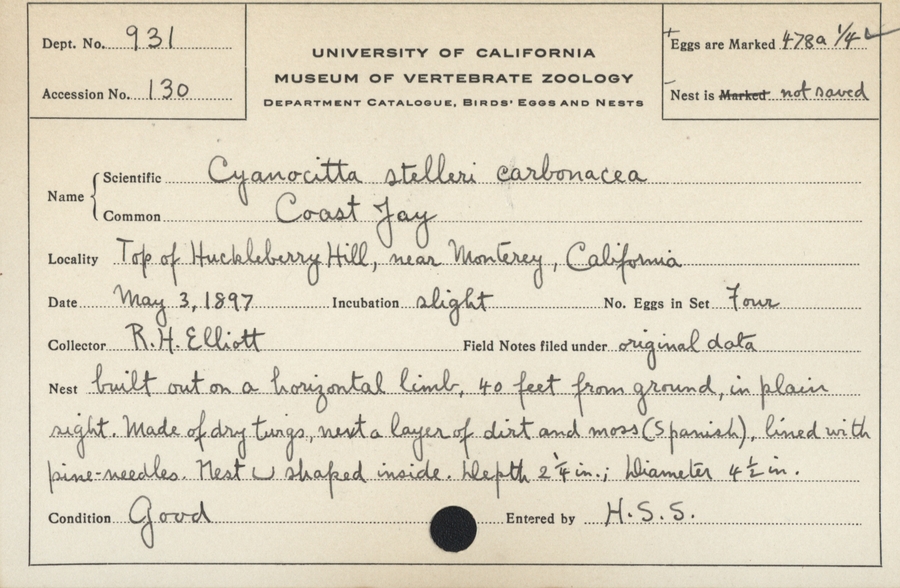 Dept. No. 931
Accession No. 130
UNIVERSITY OF CALIFORNIA
MUSEUM OF VERTEBRATE ZOOLOGY
DEPARTMENT CATALOGUE, BIRDS' EGGS AND NESTS
Eggs are Marked 478a 1/4
Nest is Marked not saved
Name
Scientific Cyanocitta stelleri carbonacea
Common Coast Jay
Locality Top of Huckleberry Hill, near Monterey, California
Date May 3, 1897 Incubation slight No. Eggs in Set Four
Collector R.H. Elliott Field Notes filed under original data
Nest built out on a horizontal limb, 40 feet from ground, in plain
sight. Made of dry twigs, next a layer of dirt and moss (Spanish), lined with
pine-needles. Nest ∪ shaped inside. Depth 2 1/4 in.; Diameter 4 1/2 in.
Condition Good Entered by H.S.S.